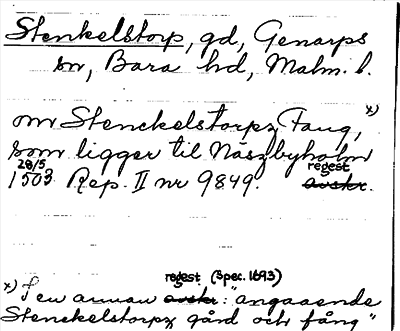 Stenkelstorp, gd, Genarps
sn, Bara hd, Malm. l.
om Stenckelstorpz Fang, x)
som ligger til Näszbyholm
28/5 regest
1503 Rep. II nr 9849. avskr.
regest (Spec. 1693)
x) I en annan avskr.: "angaaende
Stenckelstorpz gård och fång"